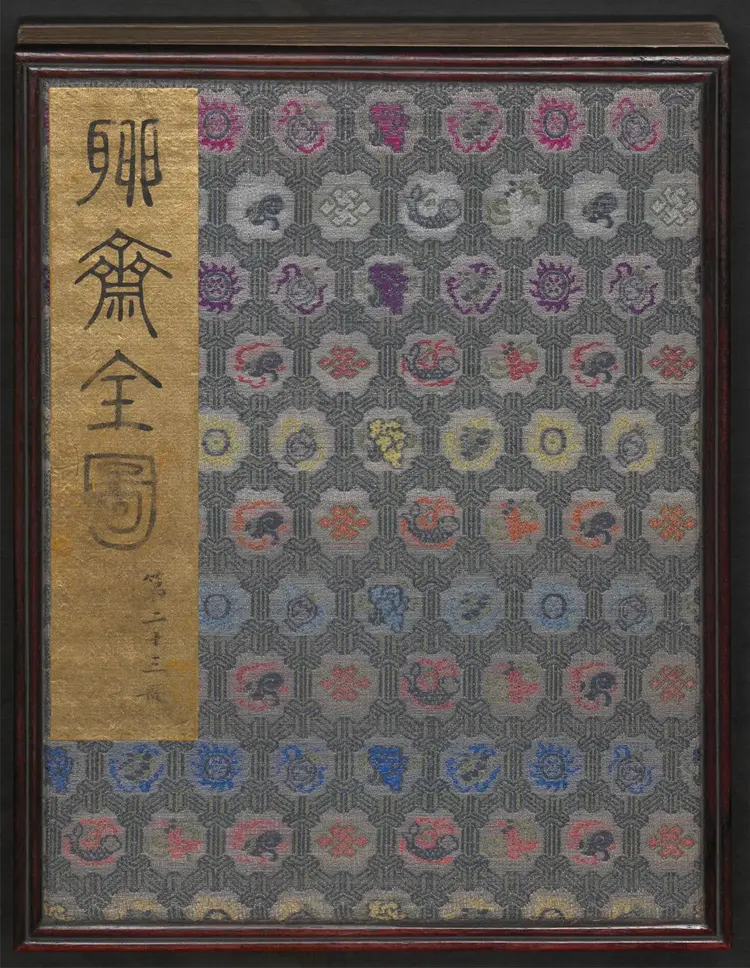 聊齋全圖
第二十三冊